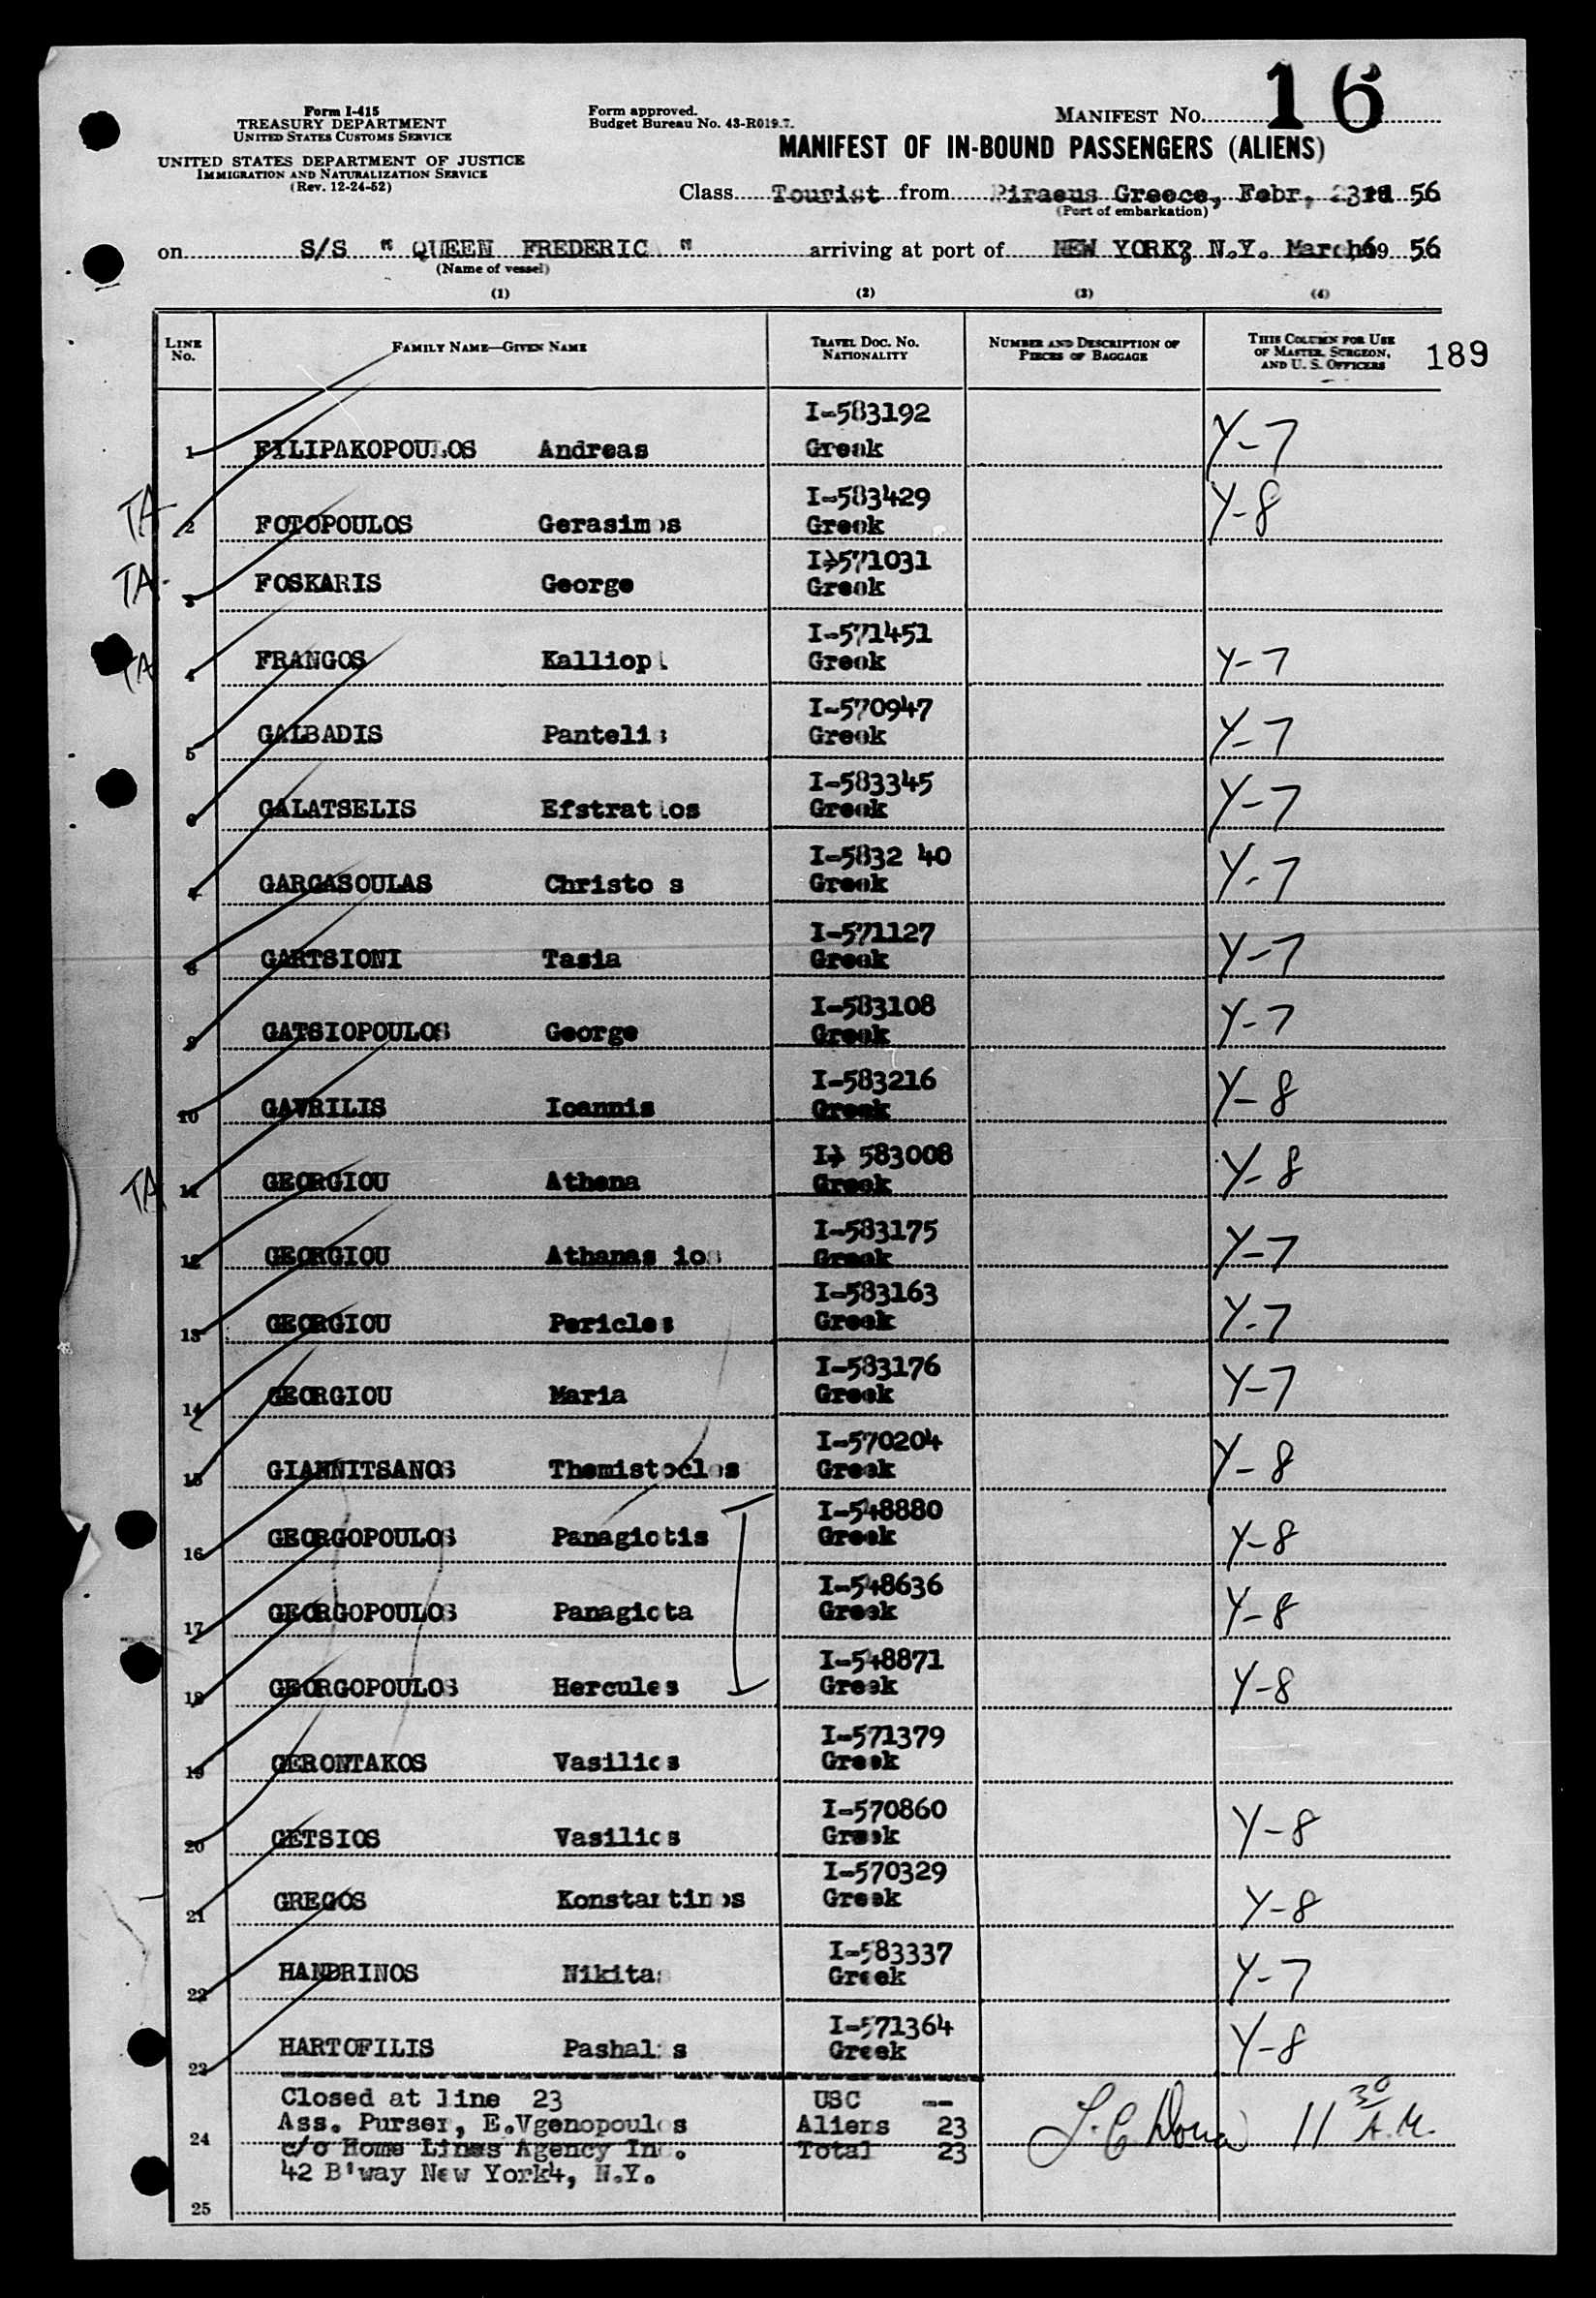 16
Form I-415
TREASURY DEPARTMENT
UNITED STATES CUSTOMS SERVICE
Form approved.
Budget Bureau No. 43-R019.7.
MANIFEST No.
UNITED STATES DEPARTMENT OF JUSTICE
IMMIGRATION AND NATURALIZATION SERVICE
(Rev. 12-24-52)
MANIFEST OF IN-BOUND PASSENGERS (ALIENS)
Class Tourist from Piraeus Greece, Febr, 23rd 56
(Port of embarkation)
on S/S " QUEEN FREDERIC " arriving at port of NEW YORK, N.Y. March 6 19 56
(Name of vessel)
(1) (2) (3) (4)
LINE No. FAMILY NAME—GIVEN NAME TRAVEL DOC. No. NATIONALITY NUMBER AND DESCRIPTION OF PIECES OF BAGGAGE THIS COLUMN FOR USE OF MASTER, SURGEON, AND U. S. OFFICERS 189
I-583192
1 FILIPAKOPOULOS Andreas Greek Y-7
I-583429
TA 2 FOTOPOULOS Gerasimos Greek Y-8
I-571031
TA. 3 FOSKARIS George Greek
I-571451
TA 4 FRANGOS Kalliopi Greek Y-7
I-570947
5 GALBADIS Pantelis Greek Y-7
I-583345
6 GALATSELIS Efstratios Greek Y-7
I-5832 40
7 GARGASOULAS Christo s Greek Y-7
I-571127
8 GARTSIONI Tasia Greek Y-7
I-583108
9 GATSIOPOULOS George Greek Y-7
I-583216
10 GAVRILIS Ioannis Greek Y-8
I- 583008
TA 11 GEORGIOU Athena Greek Y-8
I-583175
12 GEORGIOU Athanas ios Greek Y-7
I-583163
13 GEORGIOU Pericles Greek Y-7
I-583176
14 GEORGIOU Maria Greek Y-7
I-570204
15 GIANNITSANOS Themistocles Greek Y-8
I-548880
16 GEORGOPOULOS Panagiotis Greek Y-8
I-548636
17 GEORGOPOULOS Panagiota Greek Y-8
I-548871
18 GEORGOPOULOS Hercules Greek Y-8
I-571379
19 GERONTAKOS Vasilios Greek
I-570860
20 GETSIOS Vasilios Greek Y-8
I-570329
21 GREGOS Konstantinos Greek Y-8
I-583337
22 HANDRINOS Nikitas Greek Y-7
I-571364
23 HARTOFILIS Pashalis Greek Y-8
Closed at line 23 USC --
Ass. Purser, E.Vgenopoulos Aliens 23
24 c/o Home Lines Agency Inc. Total 23 11 30 A.M.
42 B'way New York4, N.Y.
25